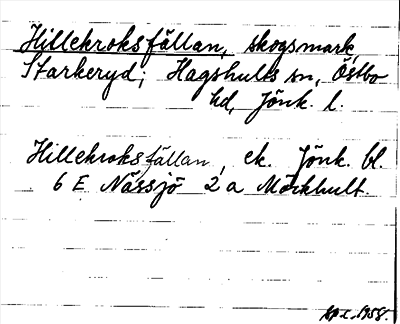 Hillekroksfällan, skogsmark,
Starkeryd; Hagshults sn, Östbo
hd, Jönk. l.
Hillekroksfällan, ek. Jönk. bl.
6 E Nässjö 2 a Mörkhult.
1958.